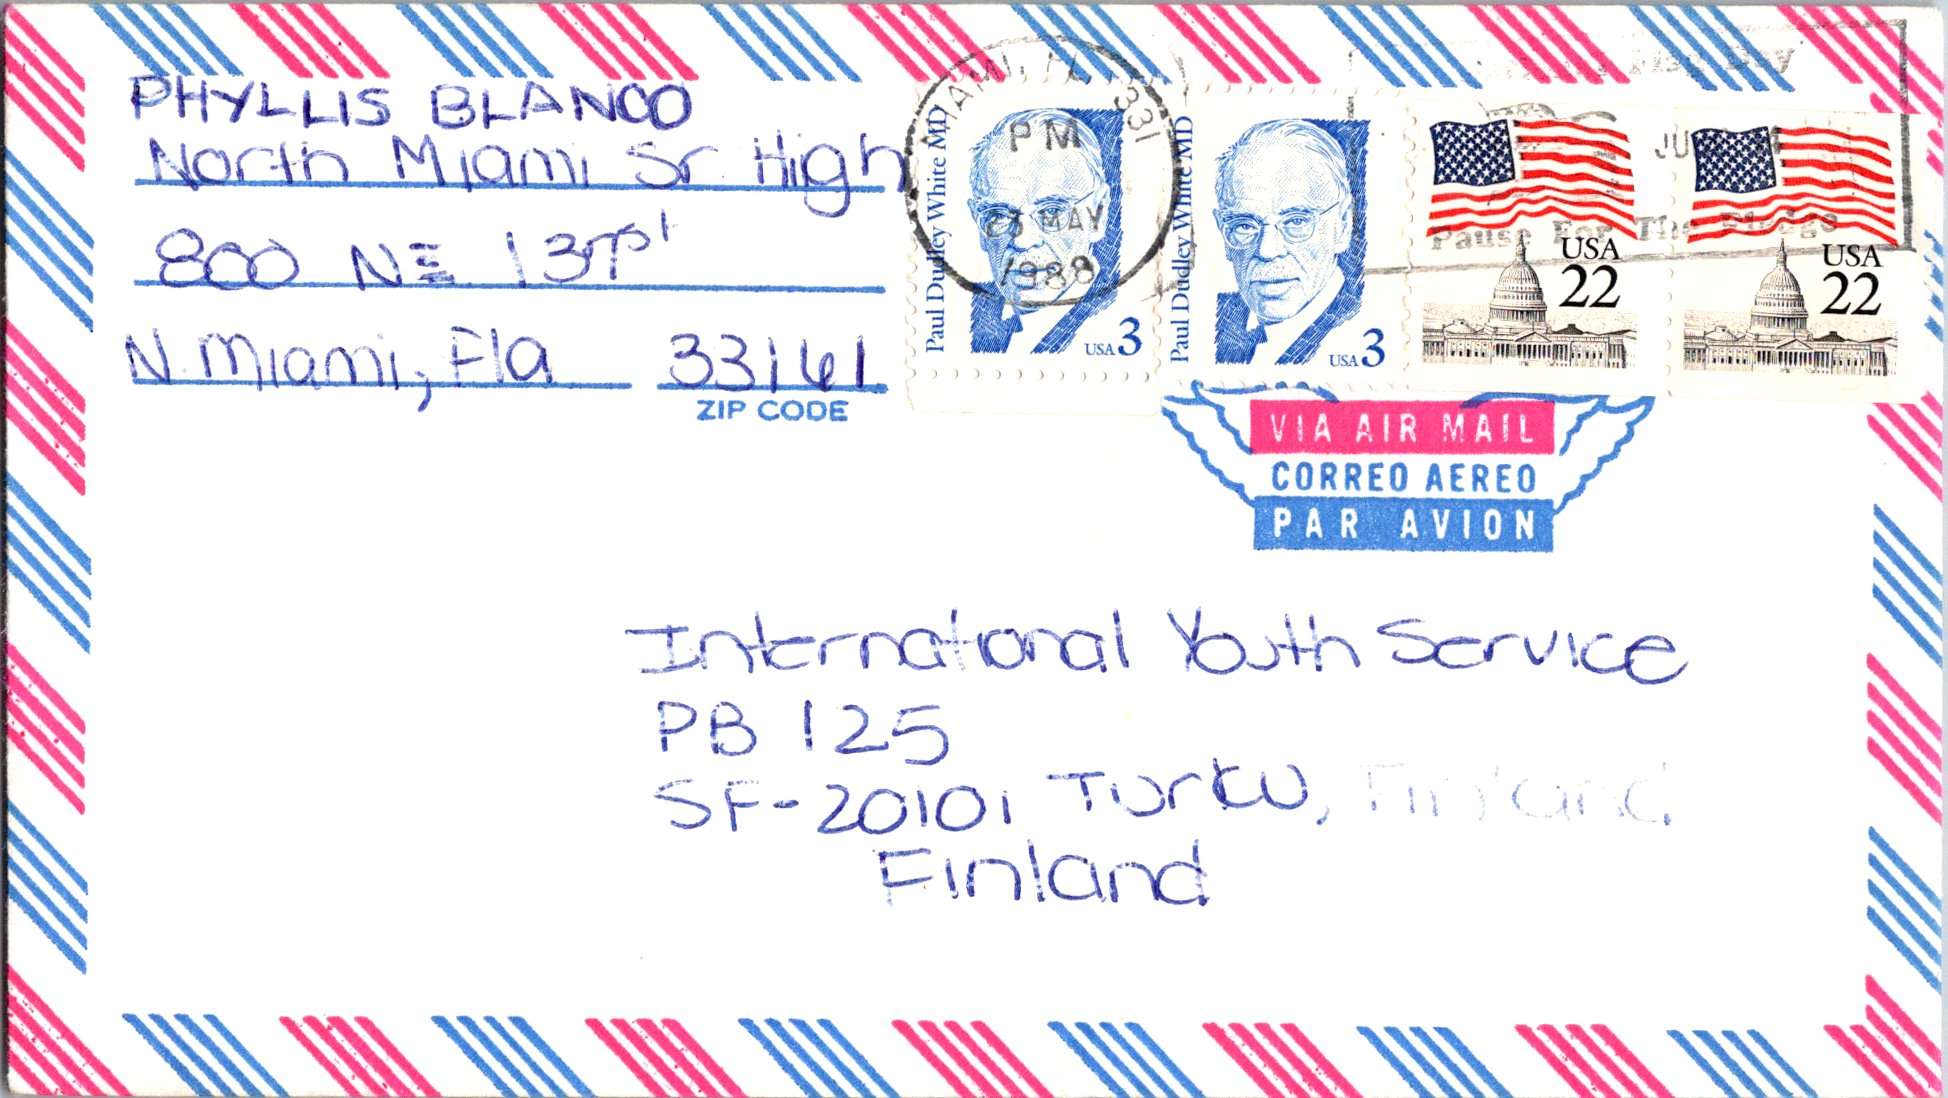 PHYLLIS BLANCO
North Miami Sr. High
800 NE 137 st
N. Miami, Fla 33161
ZIP CODE
MIAMI, FL 331
PM
23 MAY
1988
Paul Dudley White MD
USA 3
Paul Dudley White MD
USA 3
Flag Day
Pause For The Pledge
USA
22
USA
22
VIA AIR MAIL
CORREO AEREO
PAR AVION
International Youth Service
PB 125
SF-20101 Turku, Finland
Finland